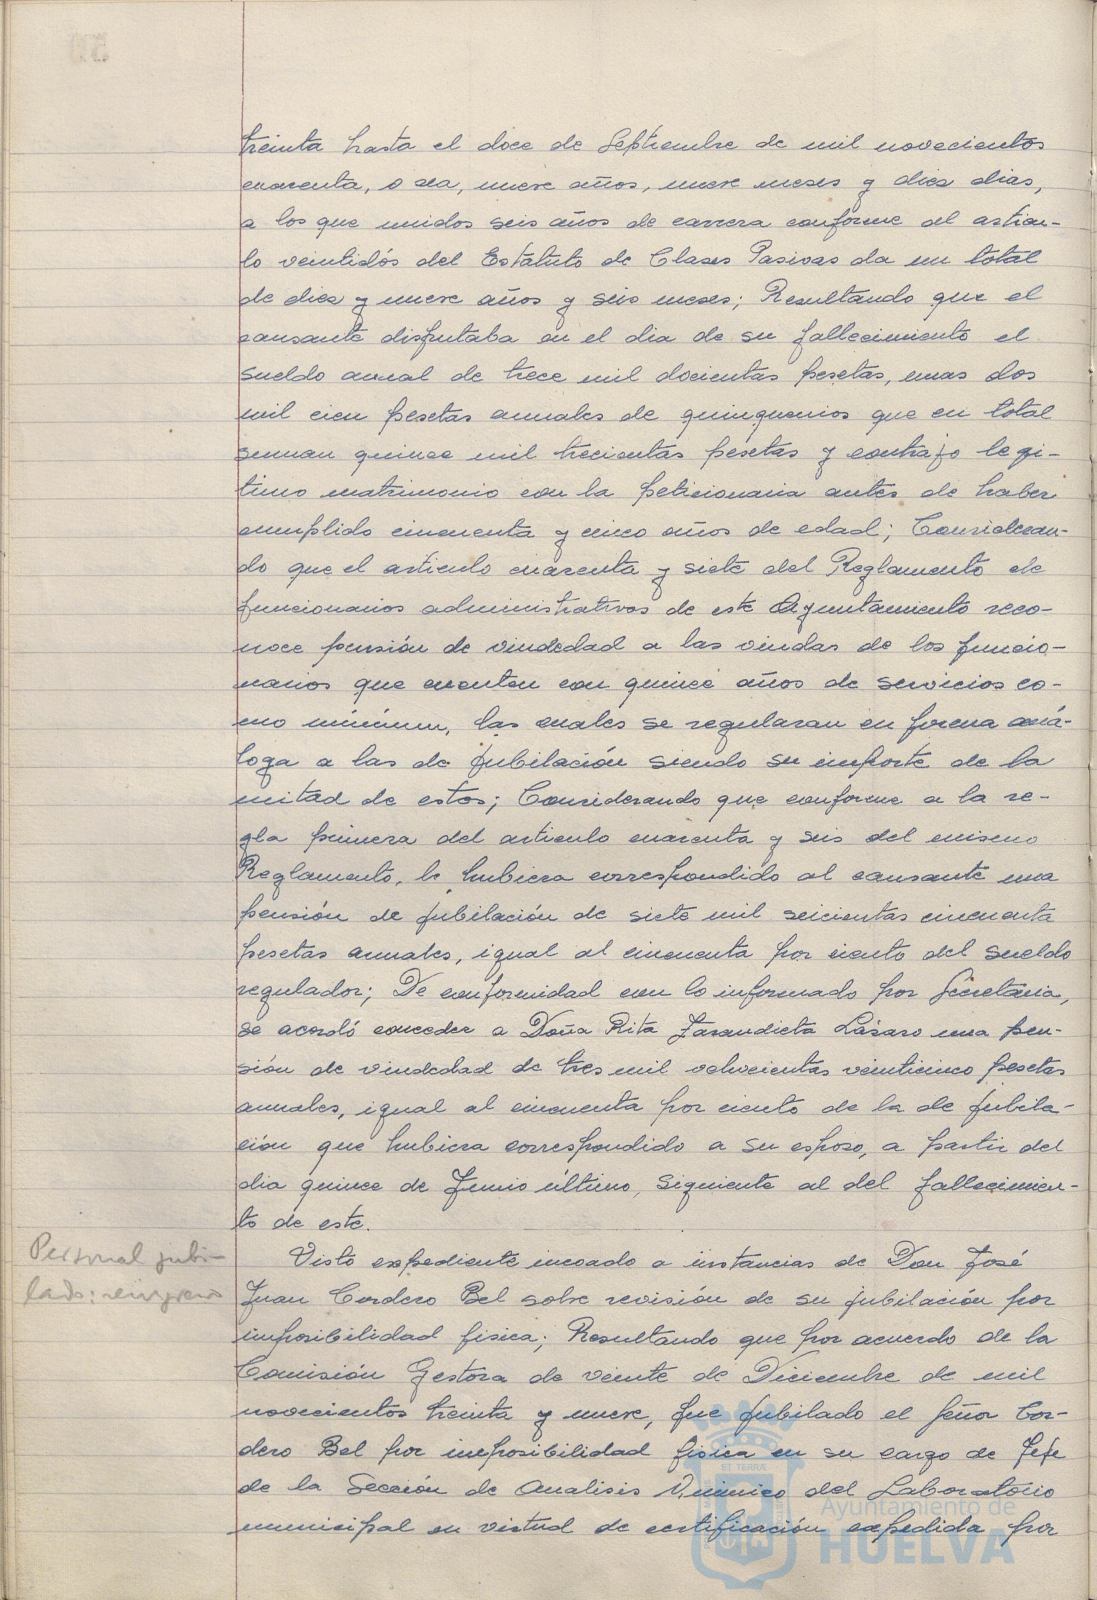 treinta hasta el doce de Septiembre de mil novecientos
cuarenta, o sea, nueve años, nueve meses y diez dias,
a los que unidos seis años de carrera conforme al articu-
lo veintidós del Estatuto de Clases Pasivas da un total
de diez y nueve años y seis meses; Resultando que el
causante disfrutaba en el dia de su fallecimiento el
sueldo anual de trece mil docientas pesetas, mas dos
mil cien pesetas anuales de quinquenios que en total
suman quince mil trecientas pesetas y contrajo legi-
timo matrimonio con la peticionaria antes de haber
cumplido cincuenta y cinco años de edad; Consideran-
do que el articulo cuarenta y siete del Reglamento de
funcionarios administrativos de este Ayuntamiento reco-
noce pensión de viudedad a las viudas de los funcio-
narios que cuenten con quince años de servicios co-
mo mínimun, las cuales se regularan en forma aná-
loga a las de jubilación siendo su importe de la
mitad de estos; Considerando que conforme a la re-
gla primera del articulo cuarenta y seis del mismo
Reglamento, le hubiera correspondido al causante una
pensión de jubilación de siete mil seicientas cincuenta
pesetas anuales, igual al cincuenta por ciento del sueldo
regulador; De conformidad con lo informado por Secretaria,
se acordó conceder a Doña Rita Lázaro una pen-
sión de viudedad de tres mil ochocientas veinticinco pesetas
anuales, igual al cincuenta por ciento de la de jubila-
ción que hubiera correspondido a su esposo, a partir del
dia quince de Junio último, siguiente al del fallecimien-
to de este.
Personal jubi-
lado: reingreso
Visto expediente incoado a instancias de Don José
Juan Cordero Bel sobre revisión de su jubilación por
imposibilidad fisica; Resultando que por acuerdo de la
Comisión Gestora de veinte de Diciembre de mil
novecientos treinta y nueve, fue jubilado el Señor Cor-
dero Bel por imposibilidad fisica en su cargo de Jefe
de la Sección de Analisis Quimico del Laboratorio
municipal en virtud de certificación expedida por
Ayuntamiento de
HUELVA